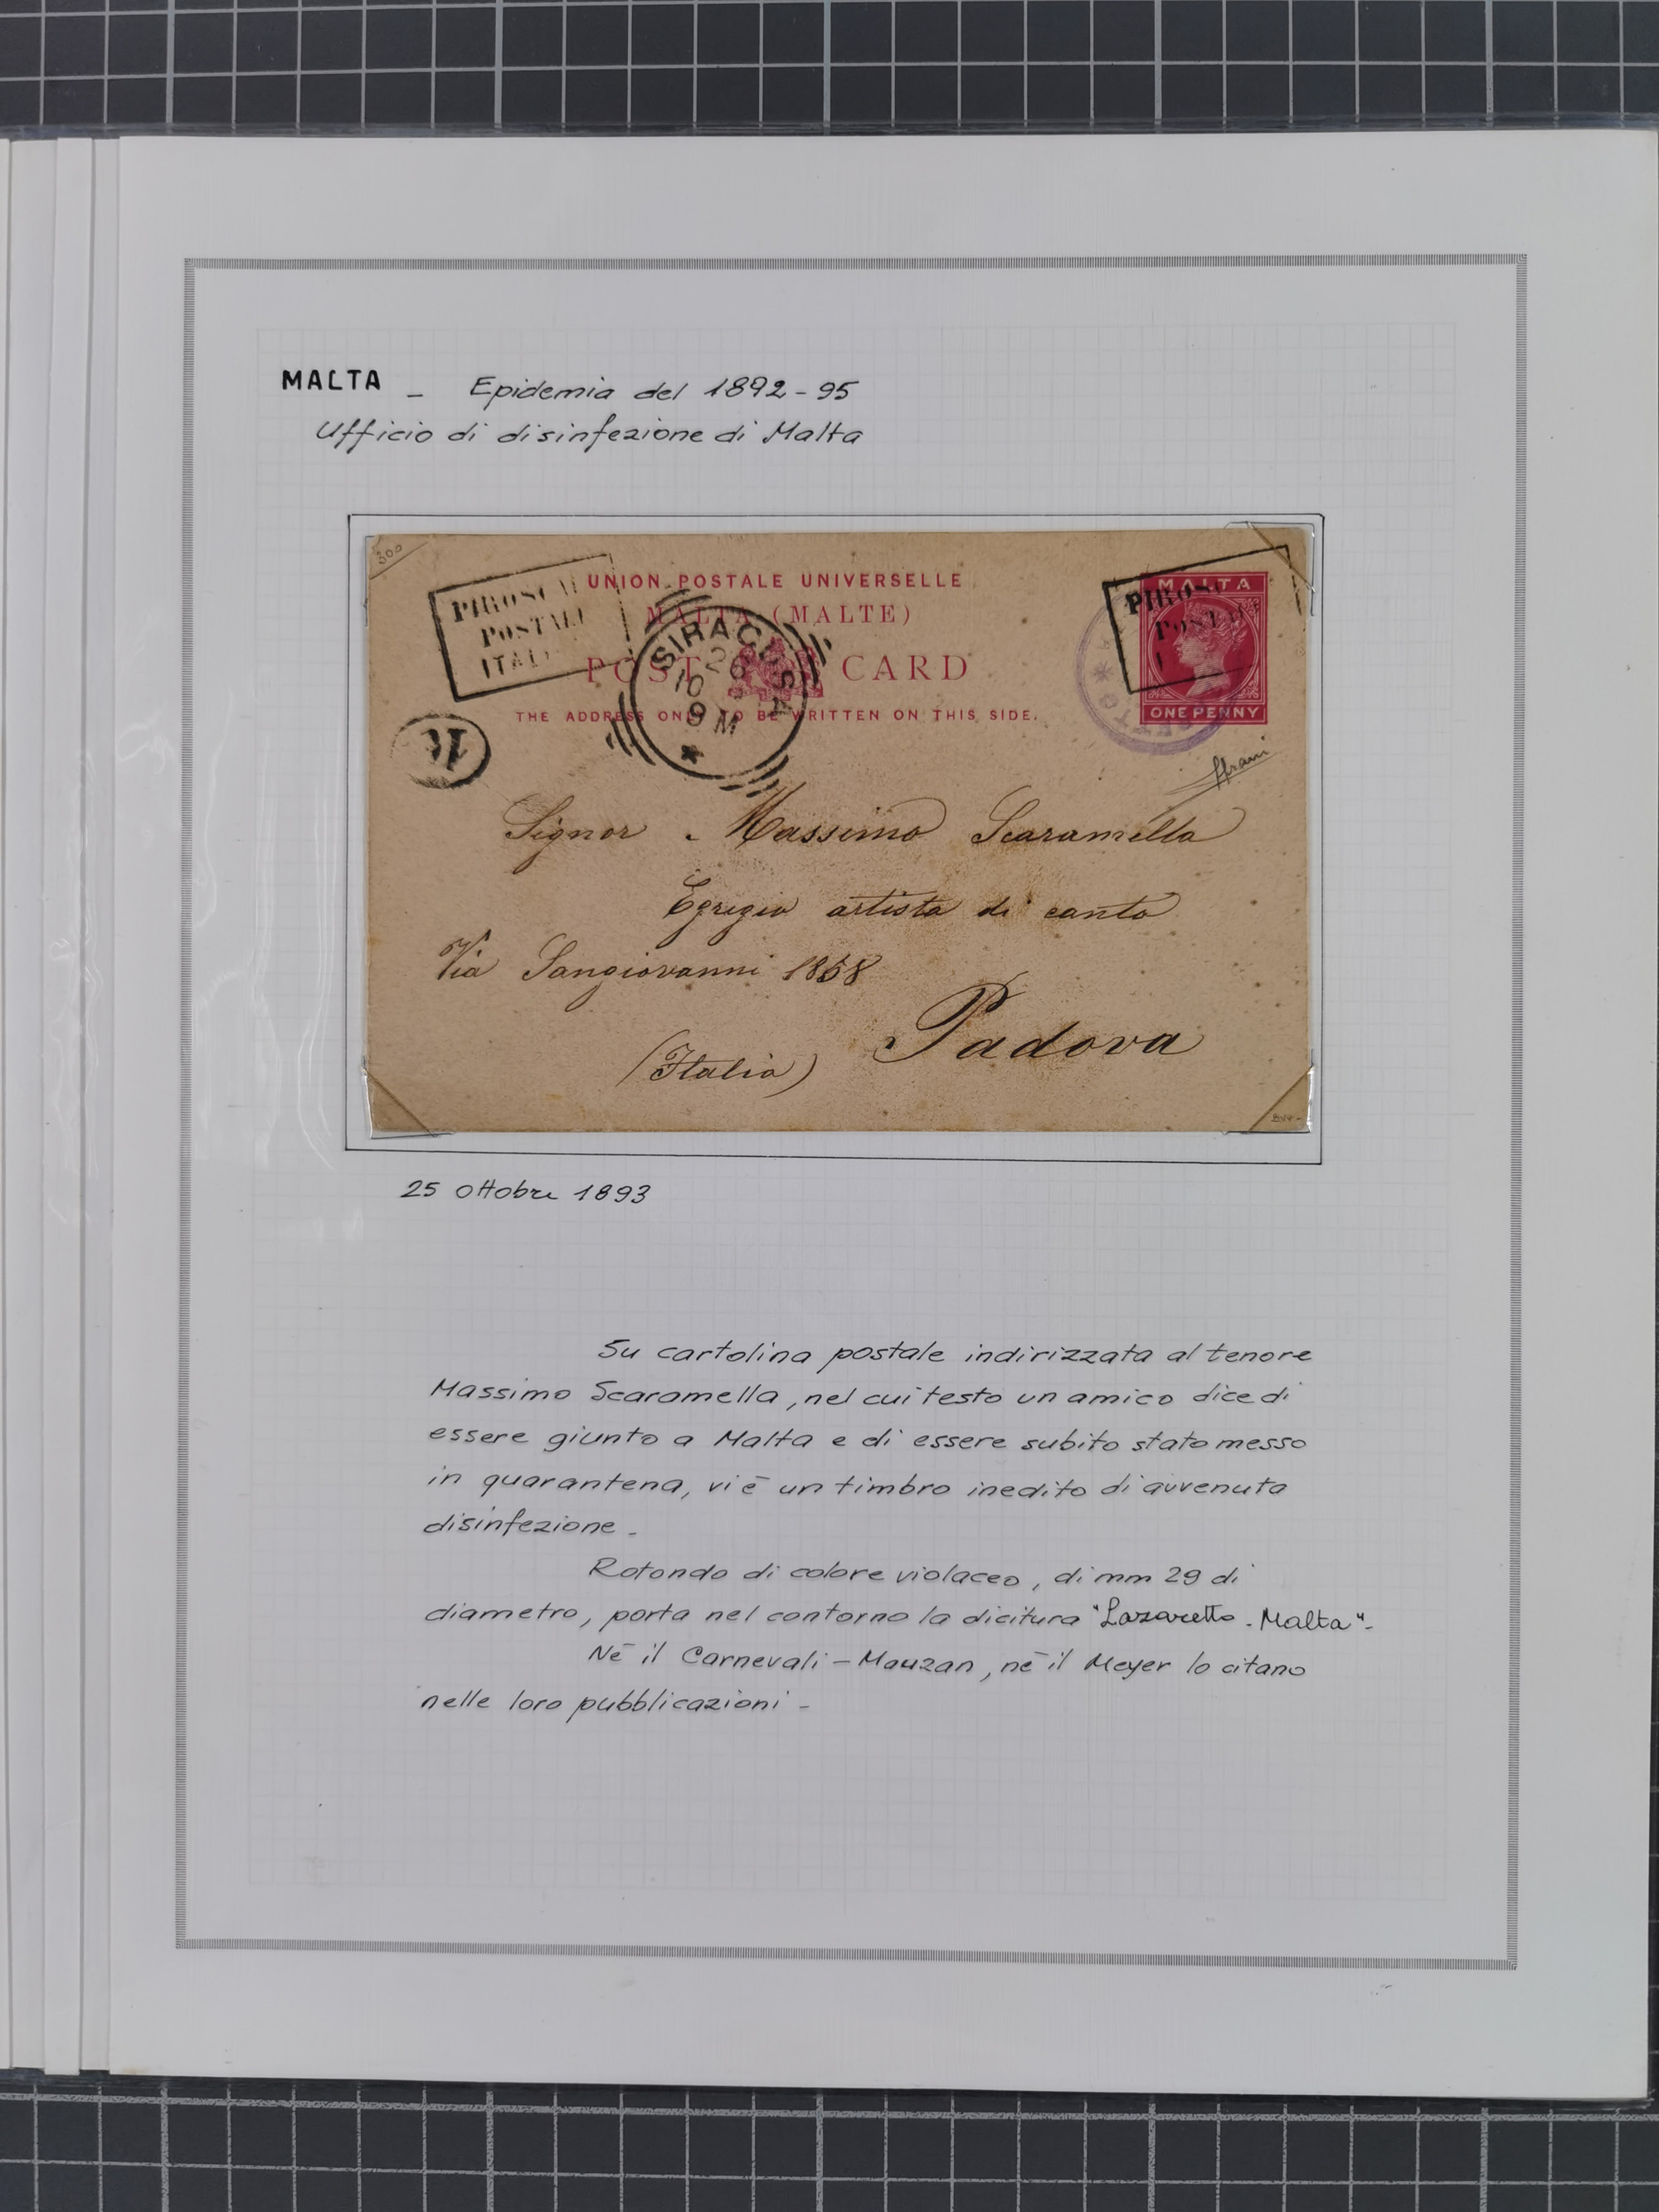 MALTA - Epidemia del 1892-95
Ufficio di disinfezione di Malta
300
PIROSCA
POSTALI
ITALI
UNION POSTALE UNIVERSELLE
MALTA (MALTE)
POST CARD
THE ADDRESS ONLY TO BE WRITTEN ON THIS SIDE.
SIRACUSA
26
10
9 M
MALTA
ONE PENNY
PIROSCA
POSTALI
I
Signor Massimo Scaramella
Egregio artista di canto
Via Sangiovanni 1868
Padova
(Italia)
25 Ottobre 1893
Su cartolina postale indirizzata al tenore
Massimo Scaramella, nel cui testo un amico dice di
essere giunto a Malta e di essere subito stato messo
in quarantena, vi è un timbro inedito di avvenuta
disinfezione -
Rotondo di colore violaceo, di mm 29 di
diametro, porta nel contorno la dicitura "Lazaretto - Malta" -
Nè il Carnevali - Mauzan, nè il Meyer lo citano
nelle loro pubblicazioni -